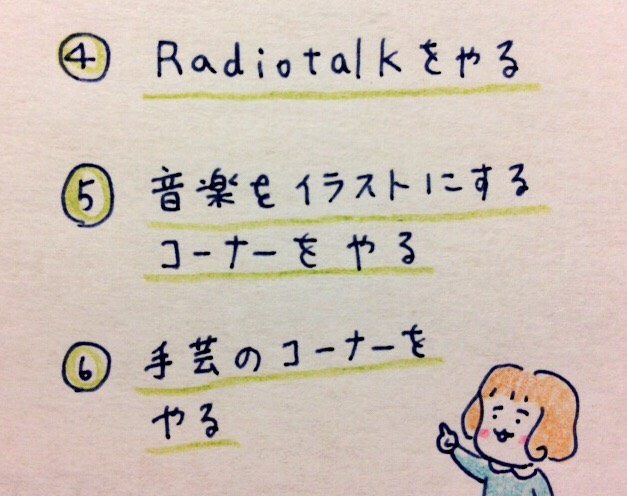 ④ Radiotalkをやる
⑤ 音楽をイラストにする
コーナーをやる
⑥ 手芸のコーナーを
やる